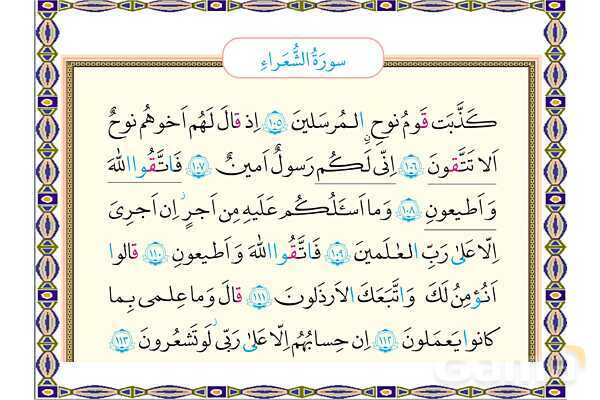 سورَةُ الشُّعَراءِ
كَذَّبَت قَومُ نوحٍ المُرسَلينَ ١٠٥ اِذ قالَ لَهُم اَخوهُم نوحٌ
اَلا تَتَّقونَ ١٠٦ اِنّی لَكُم رَسولٌ اَمینٌ ١٠٧ فَاتَّقُوا اللهَ
وَ اَطیعونِ ١٠٨ وَ ما اَسئَلُكُم عَلَیهِ مِن اَجرٍ اِن اَجرِیَ
اِلّا عَلیٰ رَبِّ العٰلَمینَ ١٠٩ فَاتَّقُوا اللهَ وَ اَطیعونِ ١١٠ قالوا
اَنُؤمِنُ لَكَ وَ اتَّبَعَكَ الاَرذَلونَ ١١١ قالَ وَ ما عِلمی بِما
كانوا یَعمَلونَ ١١٢ اِن حِسابُهُم اِلّا عَلیٰ رَبّی لَو تَشعُرونَ ١١٣
Gama